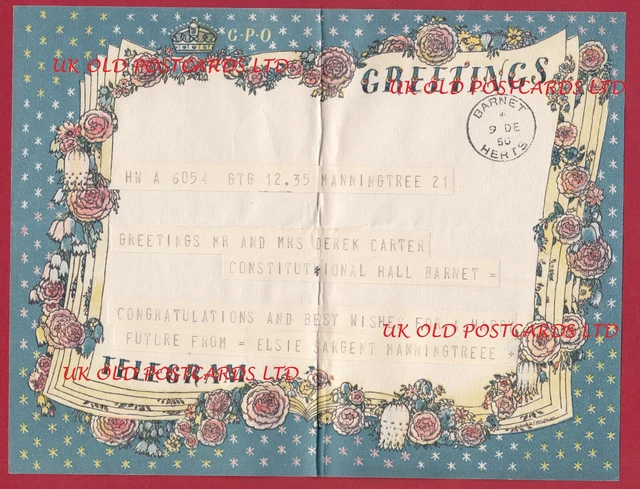 G·P·O
GREETINGS
BARNET
9 DE
50
HERTS
HW A 6054 GTG 12.35 MANNINGTREE 21
GREETINGS MR AND MRS DEREK CARTER
CONSTITUTIONAL HALL BARNET =
CONGRATULATIONS AND BEST WISHES FOR A HAPPY
FUTURE FROM = ELSIE SARGENT MANNINGTREEE +
TELEGRAM
UK OLD POSTCARDS LTD
UK OLD POSTCARDS LTD
UK OLD POSTCARDS LTD
UK OLD POSTCARDS LTD